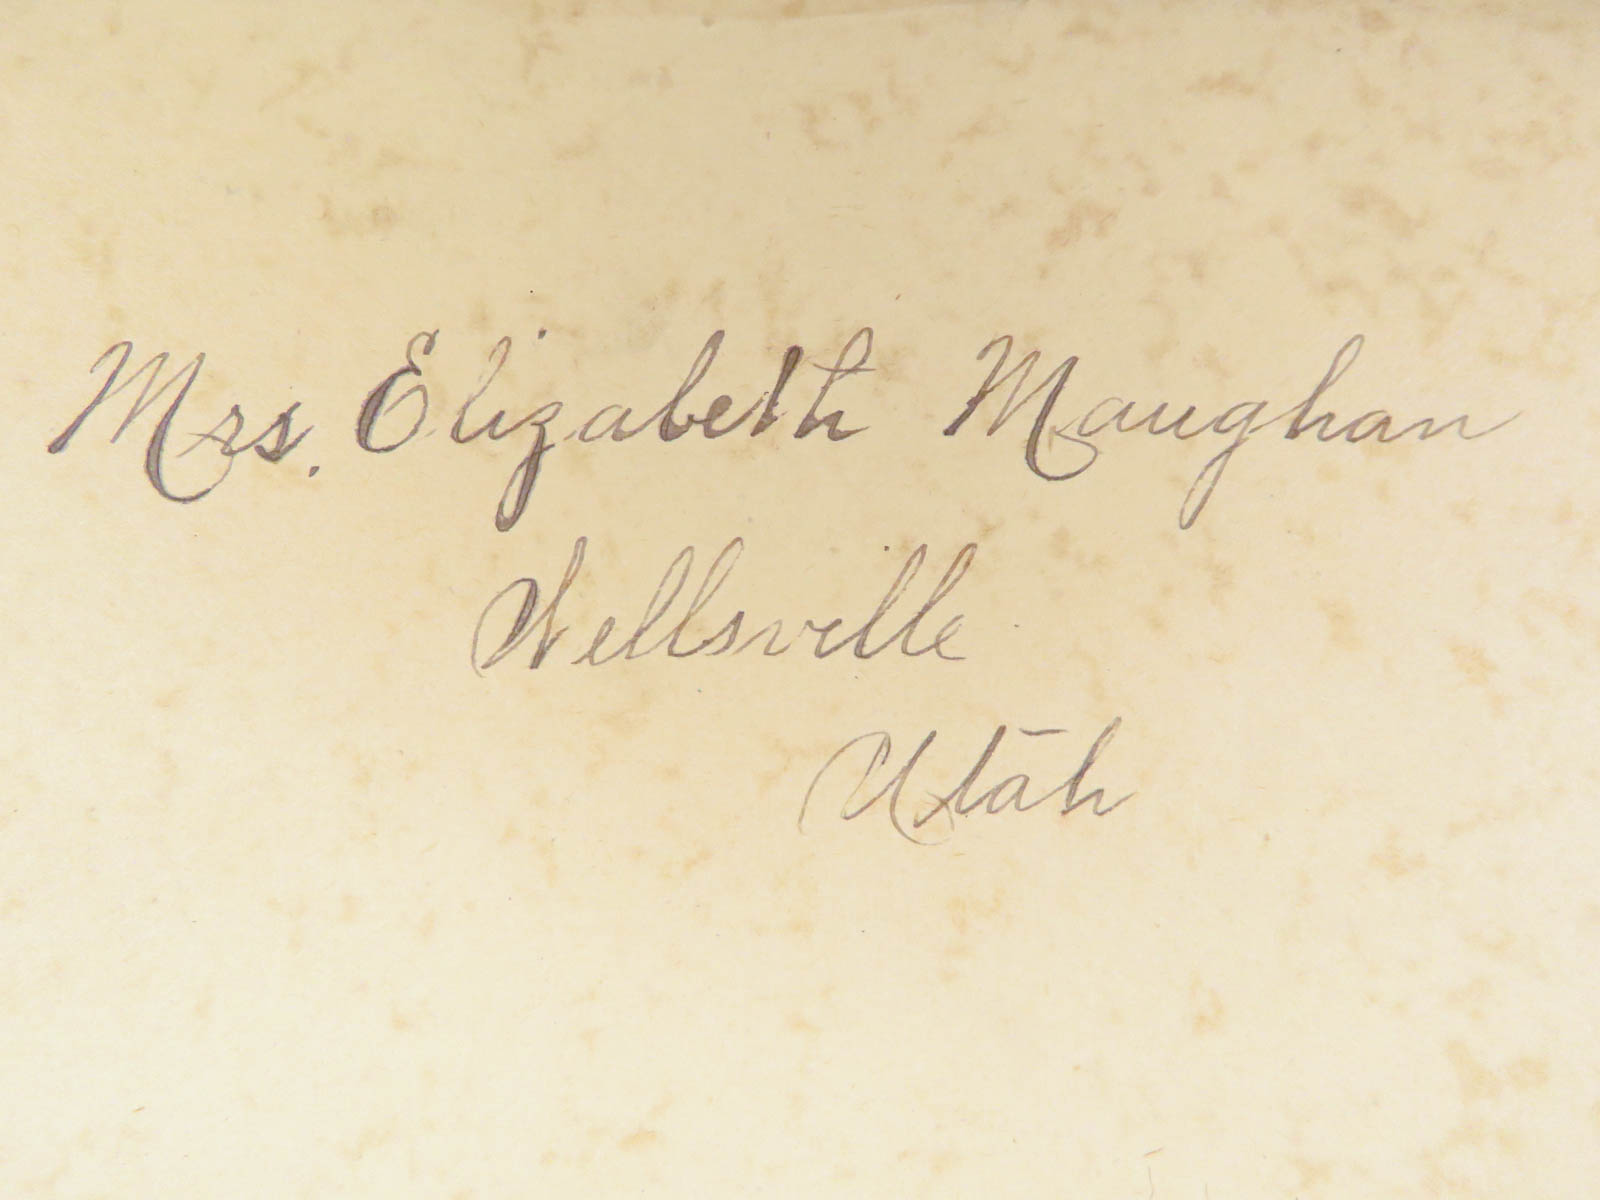 Mrs. Elizabeth Maughan
Wellsville
Utah